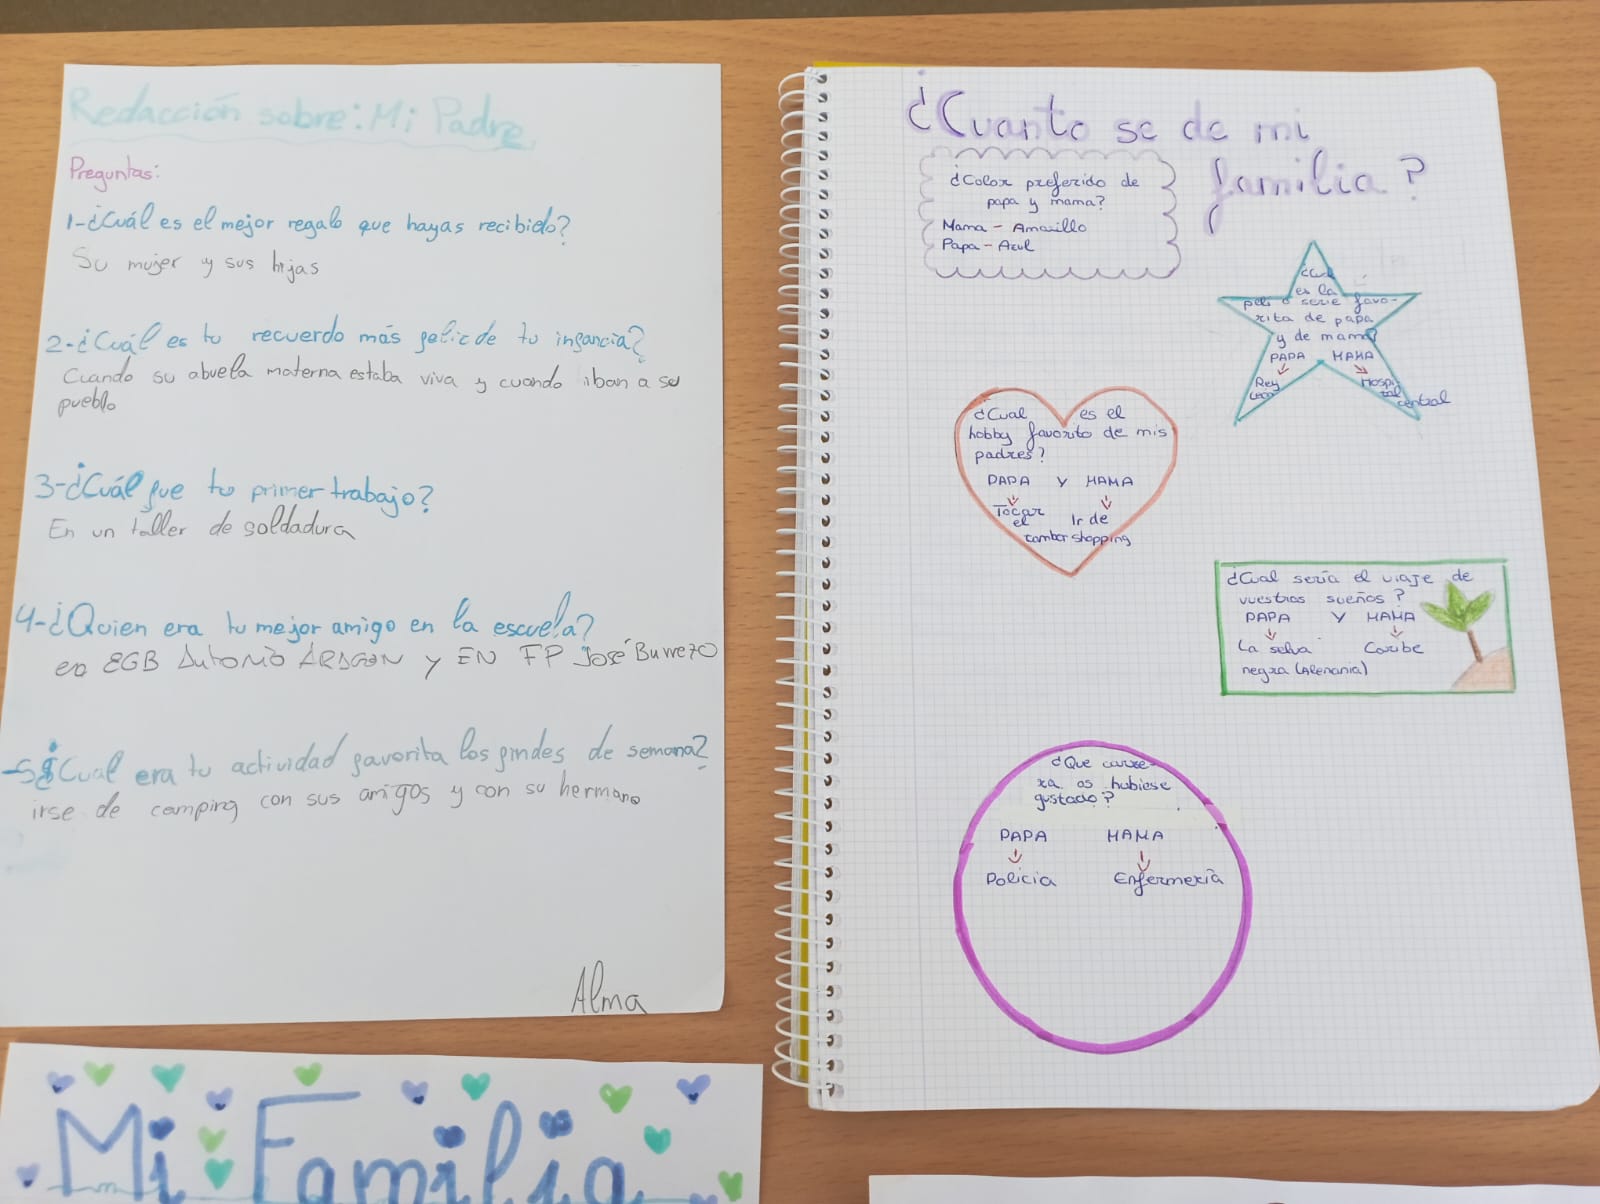 Redacción sobre: Mi Padre.
Preguntas:
1-¿Cuál es el mejor regalo que hayas recibido?
Su mujer y sus hijas
2-¿Cuál es tu recuerdo más feliz de tu infancia?
Cuando su abuela materna estaba viva y cuando iban a su
pueblo
3-¿Cuál fue tu primer trabajo?
En un taller de soldadura
4-¿Quien era tu mejor amigo en la escuela?
en EGB Antonio ARAGON y EN FP José Burrezo
-5¿Cual era tu actividad favorita los findes de semana?
irse de camping con sus amigos y con su hermano
Alma
Mi Familia
¿Cuanto se de mi
familia?
¿Color preferido de
papa y mama?
Mama - Amarillo
Papa - Azul
¿Cual
es la
peli o serie favo-
rita de papa
y de mama?
PAPA MAMA
Rey Hospi
León tal
central
¿Cual es el
hobby favorito de mis
padres?
PAPA Y MAMA
Tocar
el Ir de
tambor shopping
¿Cual sería el viaje de
vuestros sueños?
PAPA Y MAMA
La selva Caribe
negra (Alemania)
¿Que carre-
ra os hubiese
gustado?
PAPA MAMA
Policia Enfermería